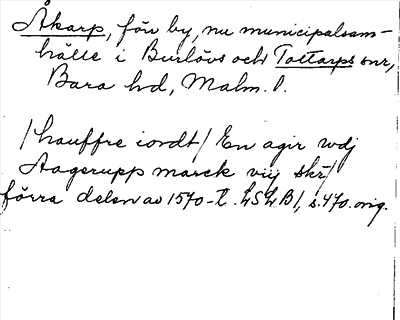 Åkarp, förr by, nu municipalsam-
hälle i Burlövs och Tottarps snr,
Bara hd, Malm. l.
/hauffre iordt/ En agir wdj
Aagerupp marck vij skr/
förra delen av 1570-t. LSLB1, s. 470. orig.